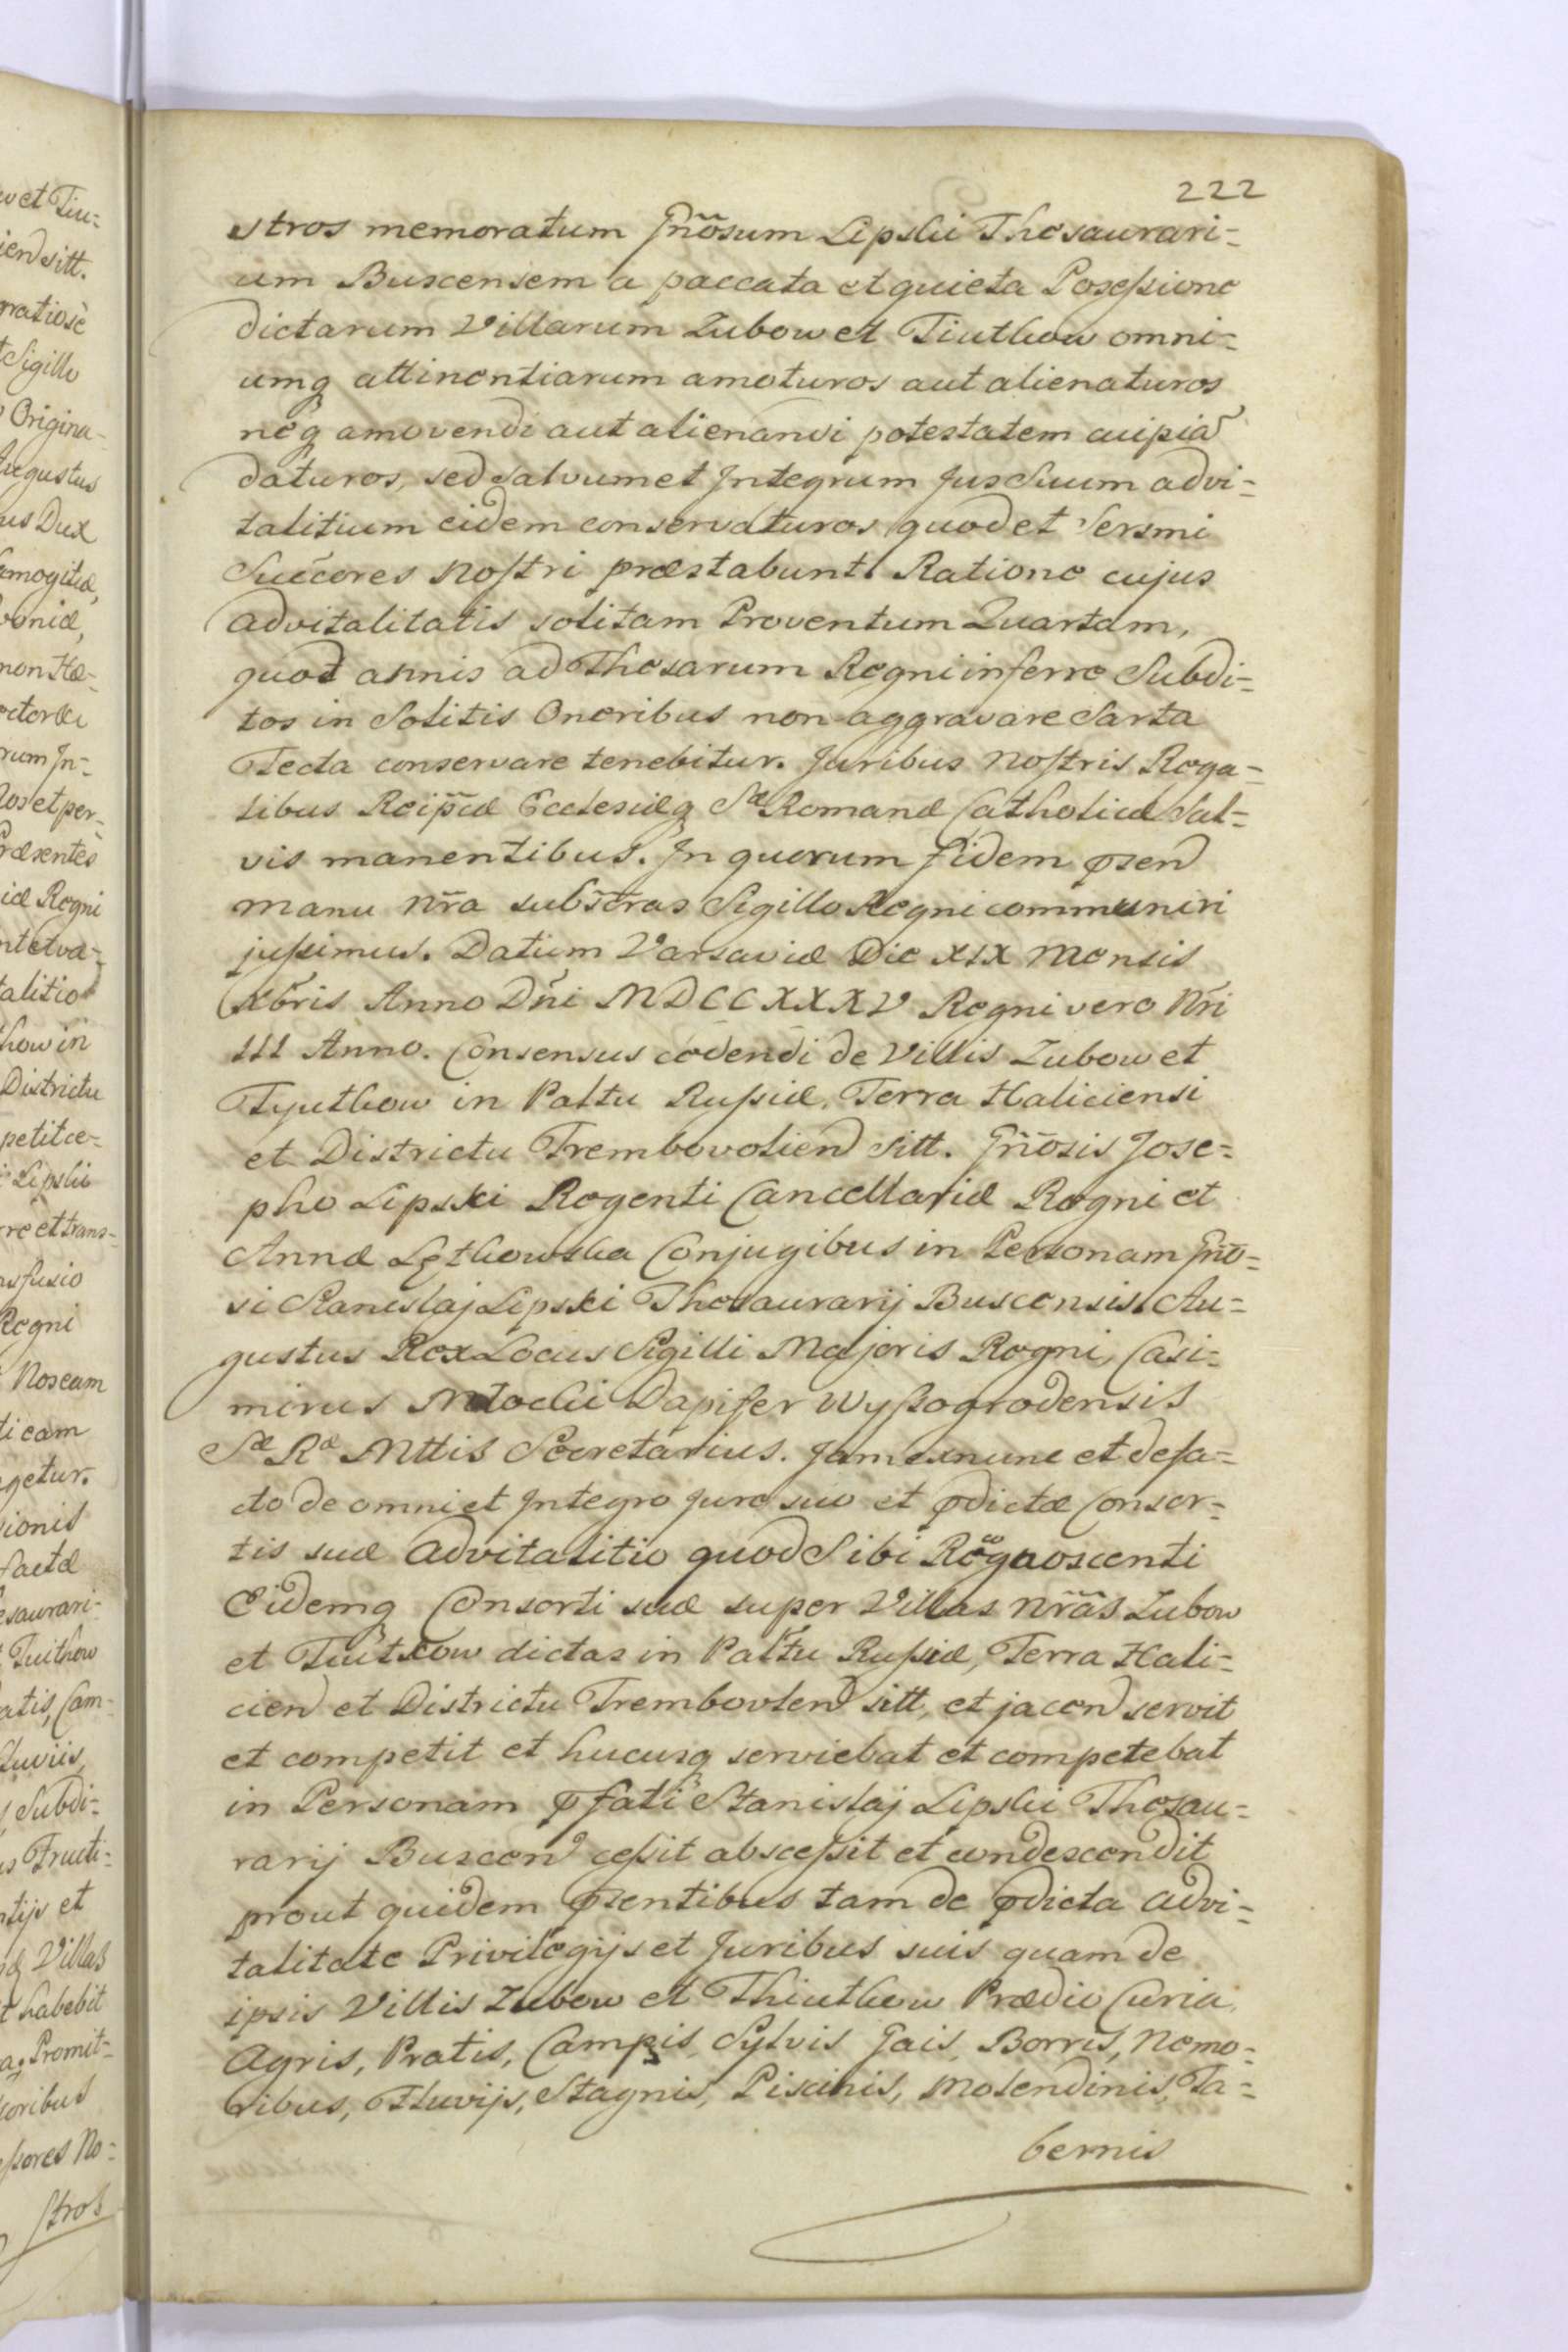 222
stros memoratum Gn̄osum Lipski Thesaurari=
um Buscensem a paccata et quieta Posessione
dictarum Villarum Zubow et Tiutkow omni=
umq attinentiarum amoturos aut alienaturos
neq amovendi aut alienandi potestatem cuipia͂
daturos, sed salvum et Integrum Jus Suum advi=
talitium eidem conservaturos quod et Sersmi
Succores nostri præstabunt. Ratione cujus
advitalitatis solitam Proventum Quartam,
quod annis ad Thesarum Regni inferre Subdi=
tos in Solitis Oneribus non aggravare Sarta
Tecta conservare tenebitur. Juribus nostris Rega=
libus Reip̄cæ Ecclesiæq Sæ Romanæ Catholicæ Sal=
vis manentibus. In quorum fidem pꝛsen
manu nr̄a subscr̄as Sigillo Regni communiri
jussimus. Datum Varsaviæ Die XIX Mensis
Xbris Anno Dn̄i MDCCXXXV Regni vero Nr̄i
III Anno. Consensus cedendi de Villis Zubow et
Tyutkow in Paltu Russiæ, Terra Haliciensi
et Districtu Trembovolien Sitt. Gn̄osis Jose=
pho Lipski Regenti Cancellariæ Regni et
Annæ Łętkowska Conjugibus in Personam Gn̄o=
si Stanislaj Lipski Thesaurarij Buscensis. Au=
gustus Rex Locus Sigilli Majoris Regni, Casi=
mirus Młocki Dapifer Wyssogrodensis
Sæ Ræ Mttis Secretarius. Jam exnunc et defa=
cto de omni et Integro jure suo et pdictæ Consor=
tis suæ advitalitio quod Sibi Rögnoscenti
Eidemq Consorti suæ super Villas nr̄ãs Zubow
et Tiutkow dictas in Paltu Russiæ, Terra Hali=
cien et Districtu Trembovlen sitt, et jacen servit
et competit et hucusq serviebat et competebat
in Personam pfati Stanislaj Lipski Thesau=
rarij Buscen cessit abscessit et condescendit
prout quidem pꝛsentibus tam de pdicta advi=
talitate Privilegijs et Juribus suis quam de
ipsis Villis Zubow et Thiutkow Prædio Curia
Agris, Pratis, Campis, Sylvis Gais, Borris, Nemo=
ribus, Fluvijs, Stagnis, Piscinis, Molendinis, Ta=
bernis